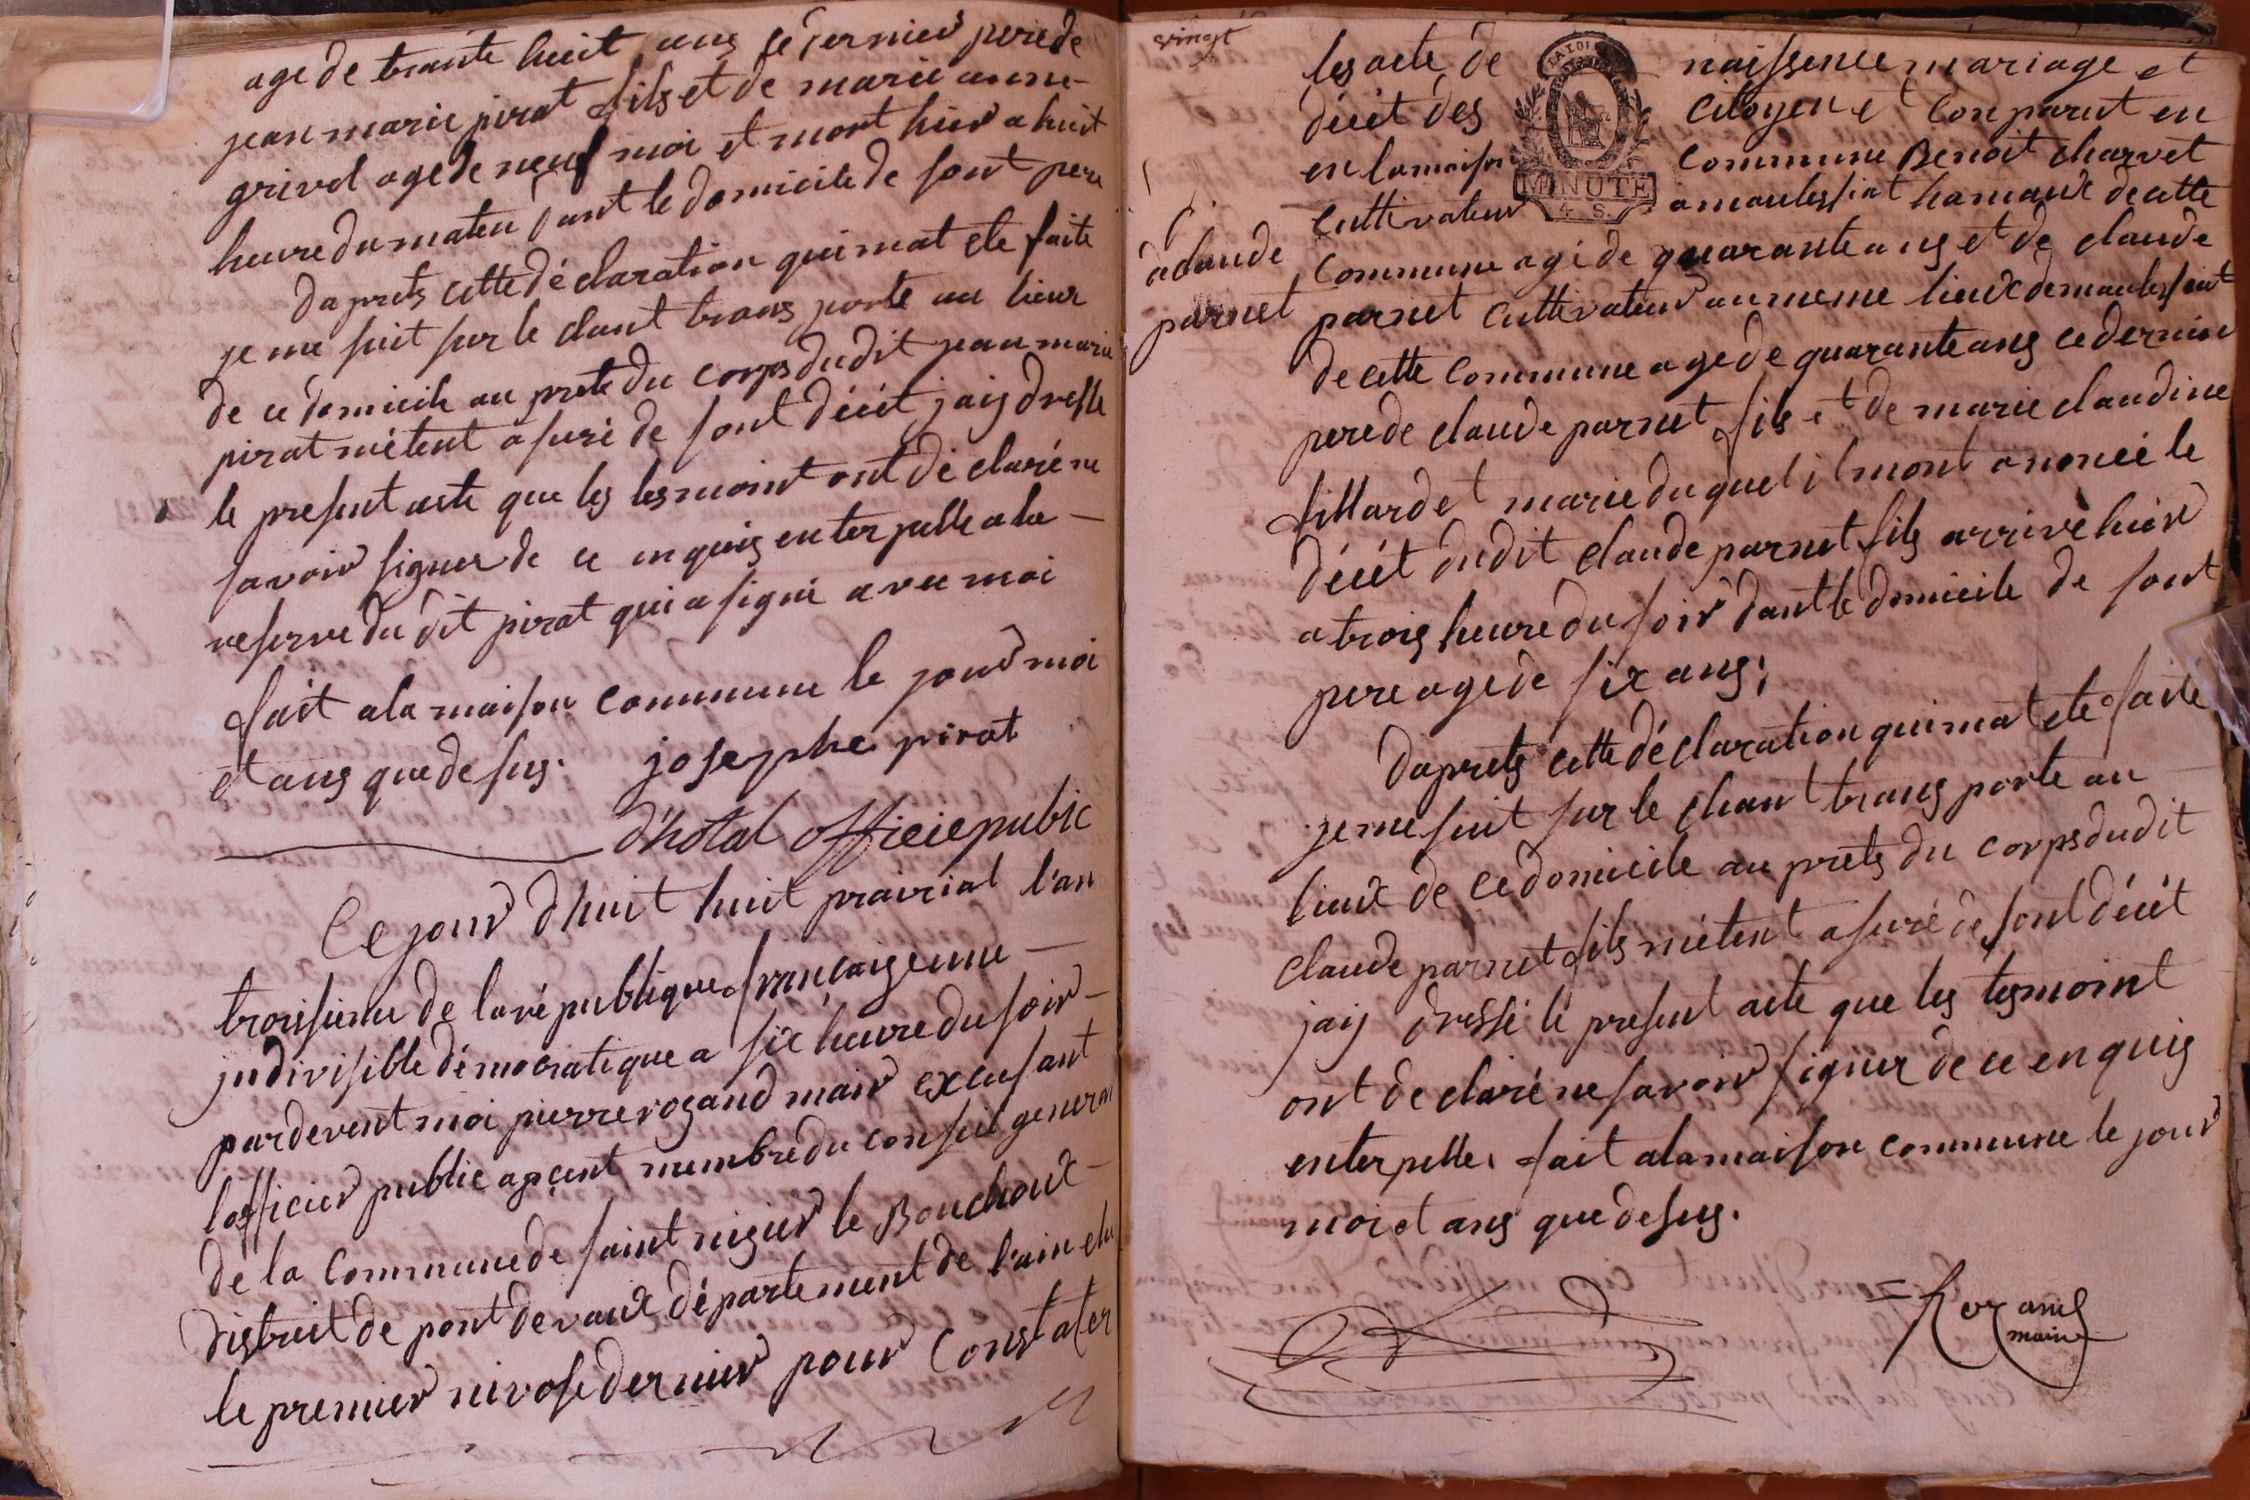 age de trante huit ans ce dernier pere de
jean marie pirat fils et de marie anne
grivel age de neuf moi et mort hier a huit
heure du maten dant le domicile de sont pere
daprets cette déclaration qui mat ete faite
je me suit sur le chant trans porte au lieux
de ce domicile au prete du corps du dit jean marie
pirat métent asuré de sont décét jais dresse
le present acte que les tesmoint ont déclaré ne
savoir signer de ce enquis enterpelle a la
reserve du dit pirat qui a signé avec moi
fait a la maison commune le jour moi
et ans que desus. josephe pirat
d'hotal officie public
Ce jour d'huit huit prairial l'an
troisieme de la république françaizenne
indivisible démocratique a six heure du soir
pardevent moi pierre rozand mair excusant
lofficier public apcent membre du conseil general
de la commune de saint nizier le Bouchoux
district de pont de vaux département de l'ain elu
le premier nivose dernier pour constater
vingt
les acte de naissence mariage et
décét des citoyen et conparut en
en la maison commune Benoit charvet
cultivateur a moulessiat hamaux de cette
commune agé de quarante ans et de claude
parnet cultivateur au meme lieux de moulessiat
de cette commune age de quarante ans ce dernier
pere de claude parnet fils et de marie claudine
fillardet marie du quel il mont anoncé le
décét du dit claude parnet fils arrivé hier
a trois heure du soir dant le domicile de sont
pere agé de six ans;
daprets cette déclaration qui mat ete faite
je me suit sur le chant trans porte au
lieux de ce domicile au prets du corps du dit
claude parnet fils métent asuré de sont décét
jais dressé le present acte que les tesmoint
ont declaré ne savoir signer de ce enquis
enterpelle. fait a la maison commune le jour
moi et ans que desus.
Rozand
maire
a claude
parnet
LA LOI
MINUTE
4 S.